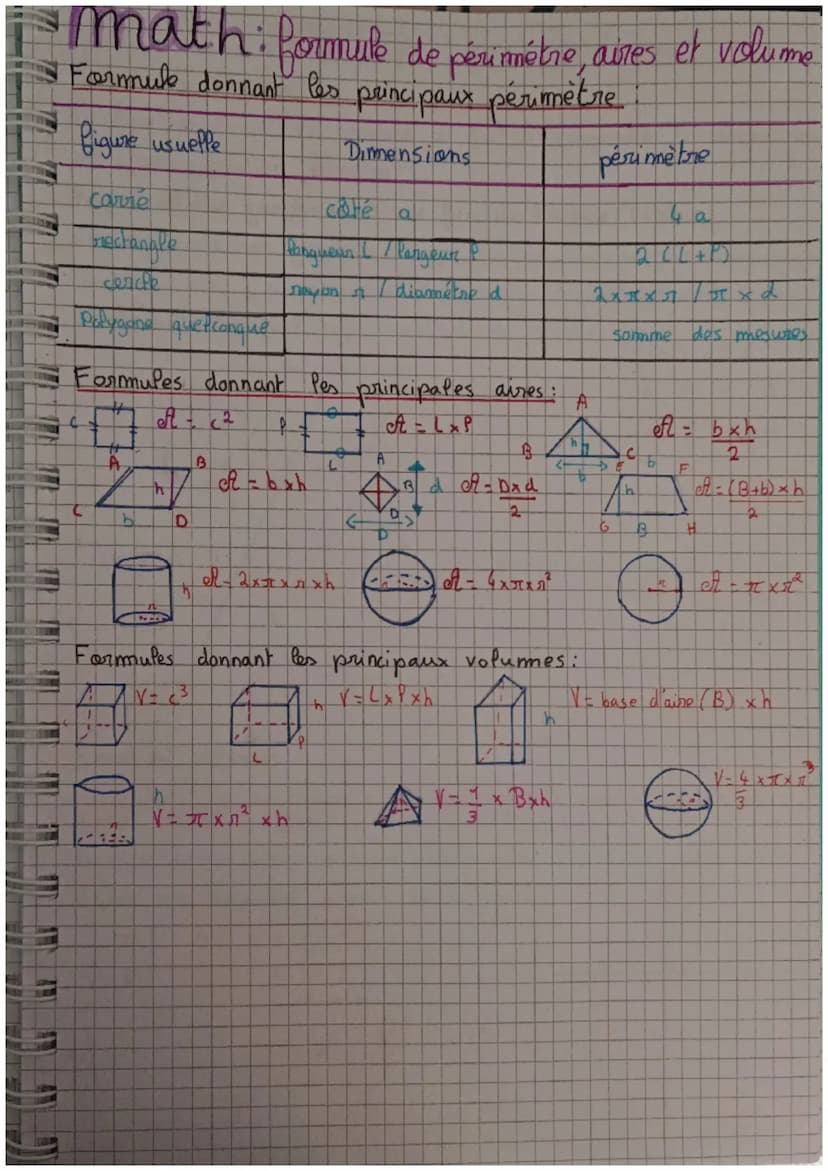 math: formule de périmétre, aires et volume
Formule donnant les principaux périmètre :
figure usuelle Dimensions périmètre
carré côté a 4 a
rectangle longueur L / largeur l 2 (L+l)
cercle rayon r / diamétre d 2xπxr / π x d
Polygone quelconque somme des mesures
Formules donnant les principales aires :
c A = c² l L A = L x l A B C h b A = b x h / 2
A B C D h b A = b x h A B D d D A = D x d / 2 E b F h G B H A = (B+b) x h / 2
h r A = 2 x π x r x h A = 4 x π x r² r A = π x r²
Formules donnant les principaux volumes :
c V = c³ h l L V = L x l x h h V = base d'aire (B) x h
h r V = π x r² x h V = 1/3 x B x h V = 4/3 x π x r³